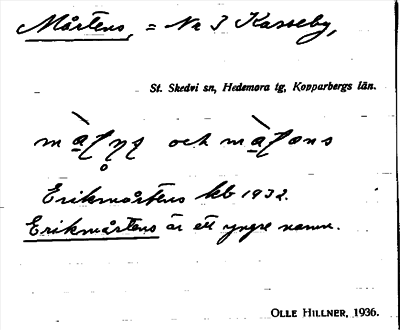 Mårtens, = Nr 3 Kasseby,
St. Skedvi sn, Hedemora tg, Kopparbergs län.
och
Erikmårtens kb 1932.
Erikmårtens är ett yngre namn.
OLLE HILLNER, 1936.